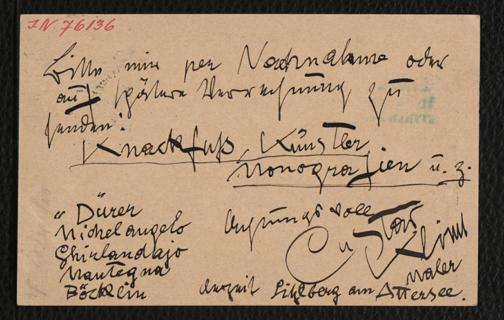 J.N. 76136
Bitte mir per Nachnahme oder
auf spätere Verrechnung zu
senden:
Knackfuß, Künstler
Monografien u. z.
„Dürer
Michelangelo
Ghirlandajo
Mantegna
Böcklin
Achtungsvoll
Gustav Klimt
Maler
derzeit Litzlberg am Attersee.